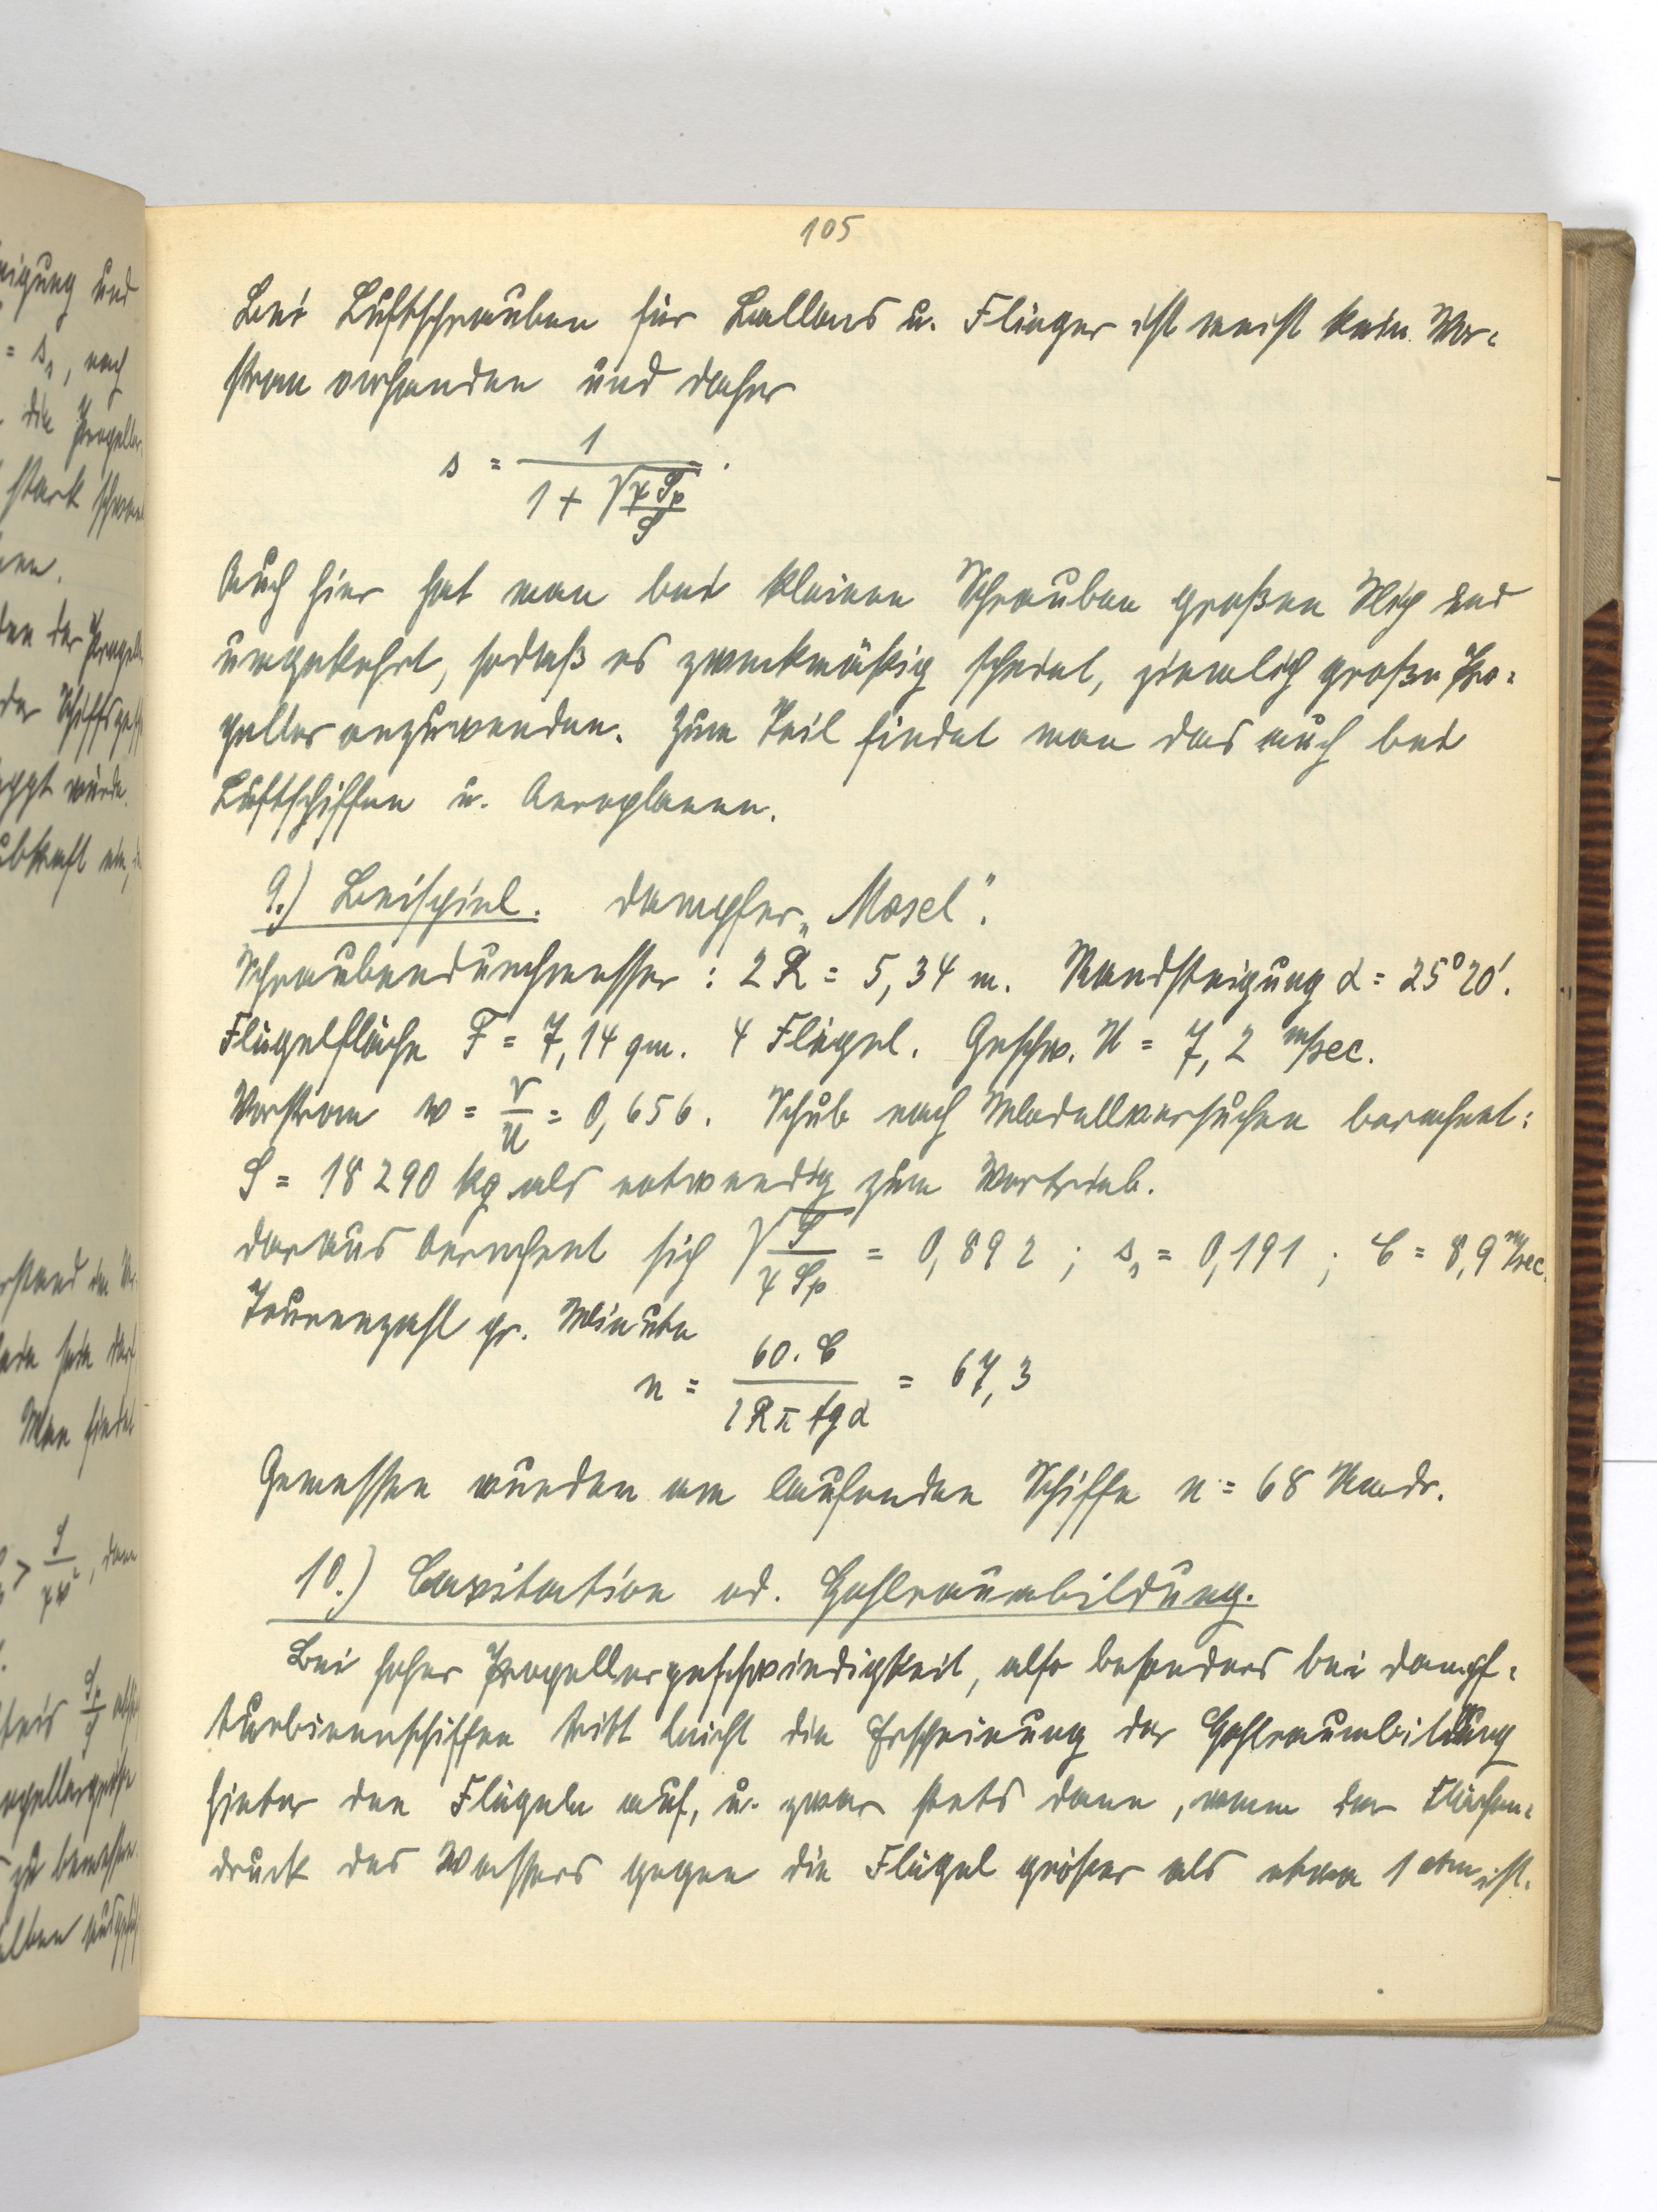 105
Bei Luftschrauben für Ballons u. Flieger ist meist kein Vor-
strom vorhanden und daher
s = 1 / (1 + √(γ Sp / S)).
Auch hier hat man bei kleinen Schrauben großen Slip und
umgekehrt, sodaß es zweckmäßig scheint, ziemlich große Pro-
peller anzuwenden. Zum Teil findet man das auch bei
Luftschiffen u. Aeroplanen.
9.) Beispiel. Dampfer „Mosel".
Schraubendurchmesser: 2R = 5,34 m. Randsteigung α = 25°20'.
Flügelfläche F = 7,14 qm. 4 Flügel. Geschw. U = 7,2 m/sec.
Vorstrom w = v/U = 0,656. Schub nach Modellversuchen berechnet:
S = 18290 kg als notwendig zum Vortrieb.
Daraus berechnet sich √(S / γ Sp) = 0,892; s₁ = 0,191; C = 8,9 m/sec.
Tourenzahl pr. Minute
n = 60. C / 2Rπ tg α = 67,3
Gemessen wurden am laufenden Schiffe n = 68 Umdr.
10.) Cavitation od. Hohlraumbildung.
Bei hoher Propellergeschwindigkeit, also besonders bei Dampf-
turbinenschiffen tritt leicht die Erscheinung der Hohlraumbildung
hinter den Flügeln auf, u. zwar stets dann, wenn der Flächen-
druck des Wassers gegen die Flügel größer als etwa 1 atm ist.
nigung und
= s₁, nach
die Propeller
stark
den der
der
würde.
Man findet
> S / γv², dann
zu bemessen.